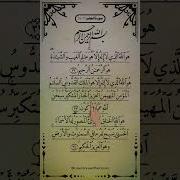 بسم الله الرحمن الرحيم
هو الله الذي لا إله إلا هو عالم الغيب والشهادة
هو الرحمن الرحيم
هو الله الذي لا إله إلا هو الملك القدوس السلام
المؤمن المهيمن العزيز الجبار المتكبر سبحن
الله عما يشركون
هو الله الخالق البارئ المصور له الأسماء
الحسنى يسبح له ما في السموات والأرض
وهو العزيز الحكيم